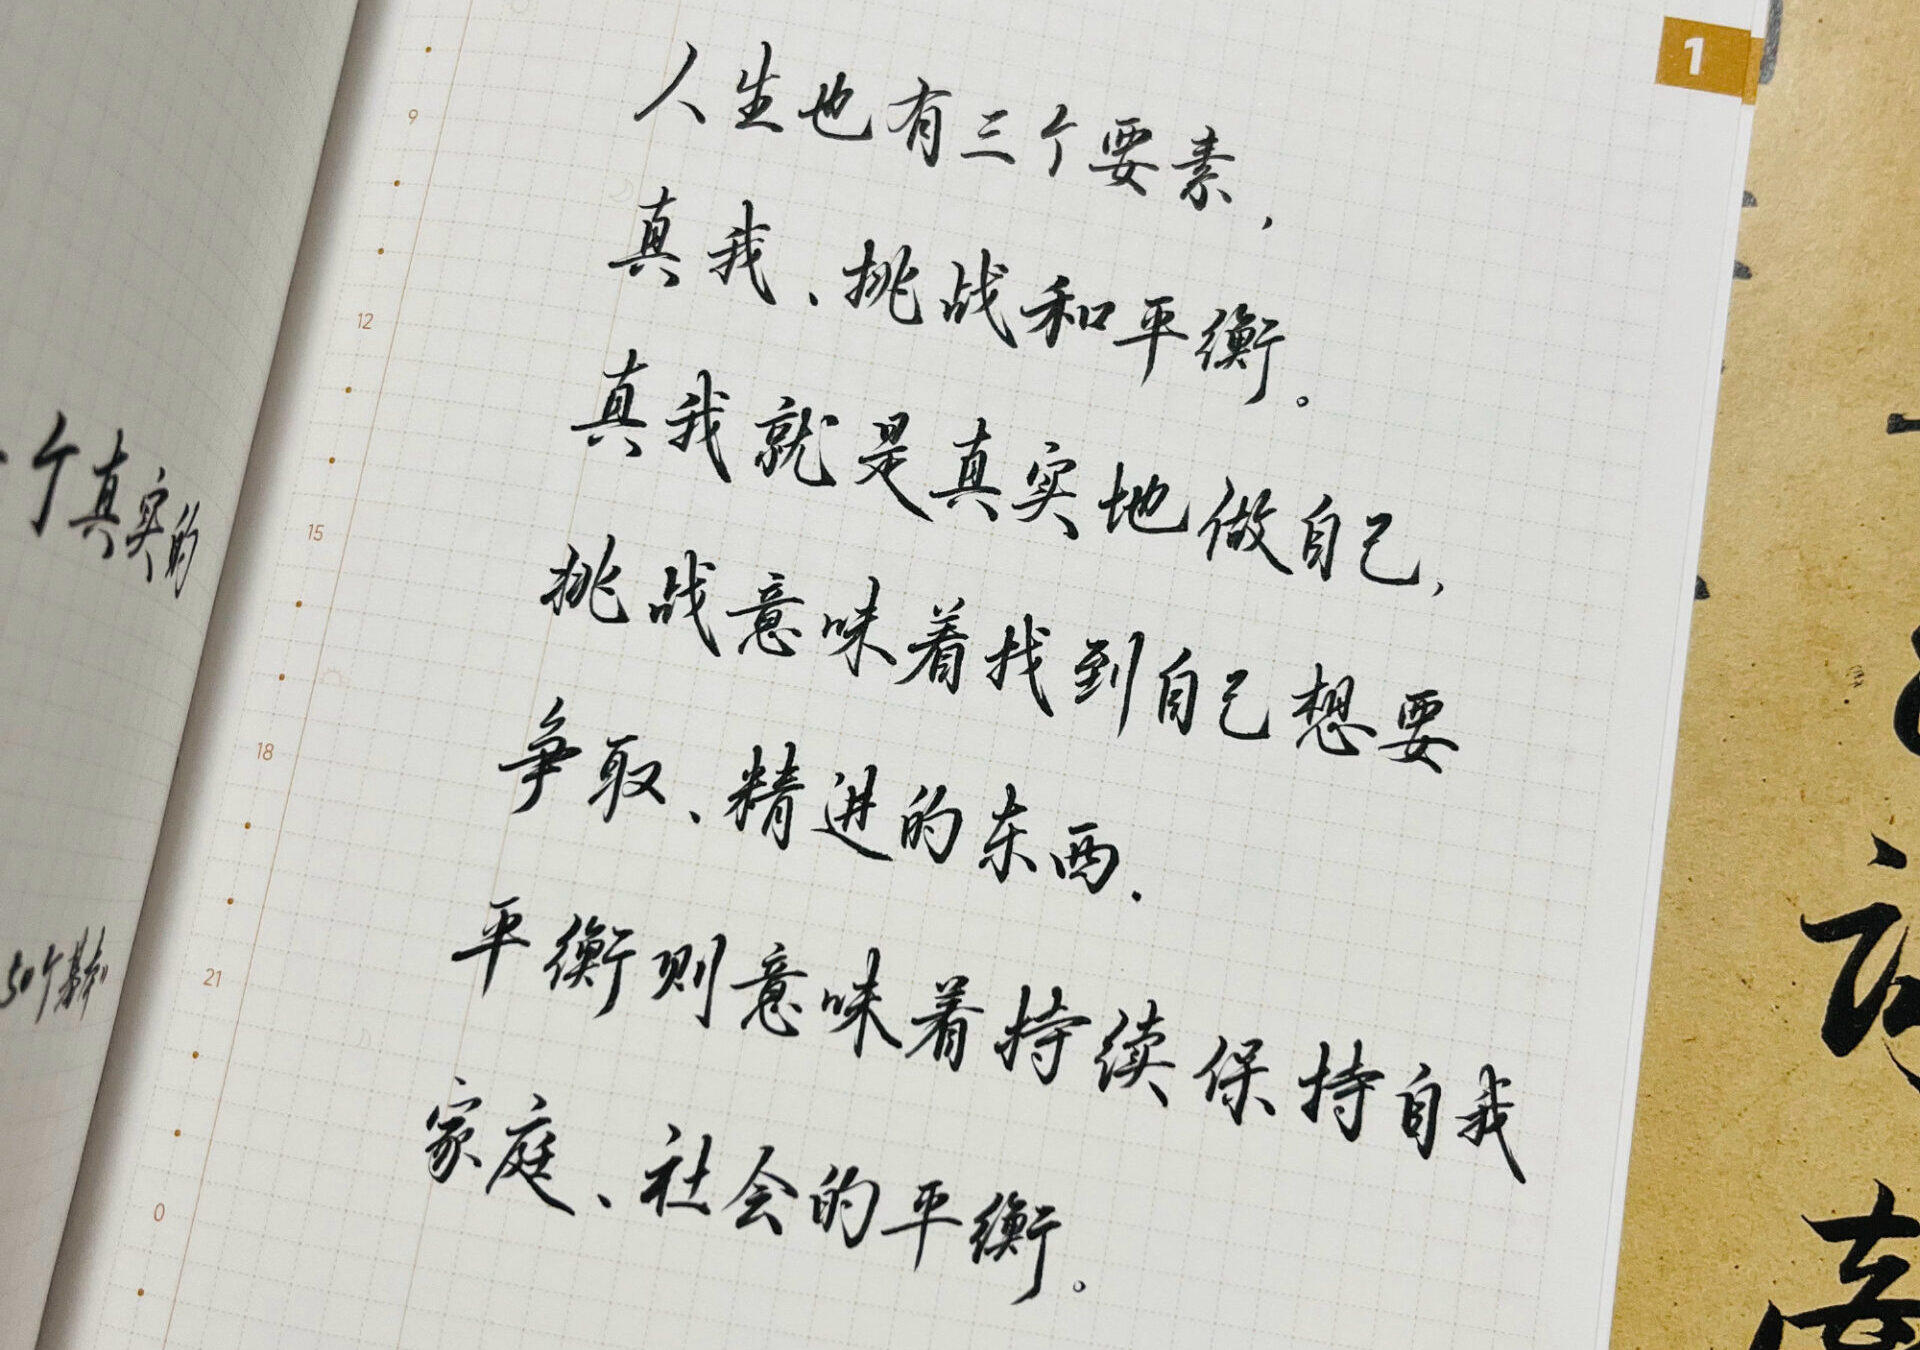 个真实的
50个基本
1
9
12
15
18
21
0
人生也有三个要素，
真我、挑战和平衡。
真我就是真实地做自己，
挑战意味着找到自己想要
争取、精进的东西.
平衡则意味着持续保持自我
家庭、社会的平衡。